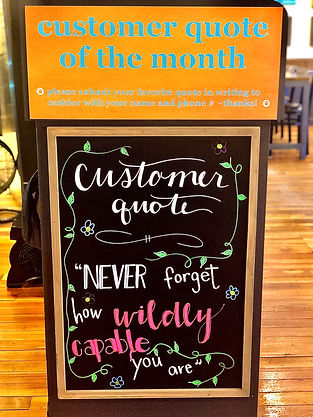 customer quote
of the month
please submit your favorite quote in writing to
cashier with your name and phone # - thanks!
Customer
quote
"NEVER forget
how wildly
capable
you are"